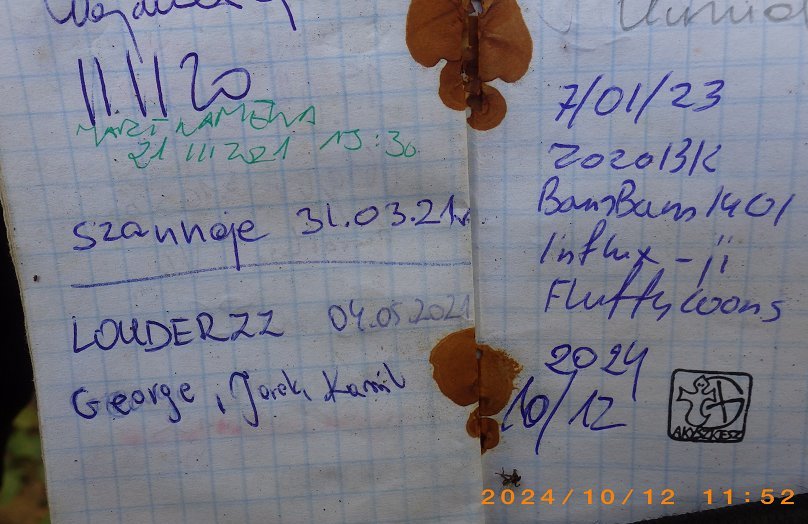 11.11 20
21 III 2021 15:30
szannoje 31.03.21r
LOUDERZZ 04.05.2021
George, Jarek, Kamil
7/01/23
BamBam1401
Influx-ji
Fluffycoons
2024
10/12
AKYSZKESZ
2024/10/12 11:52